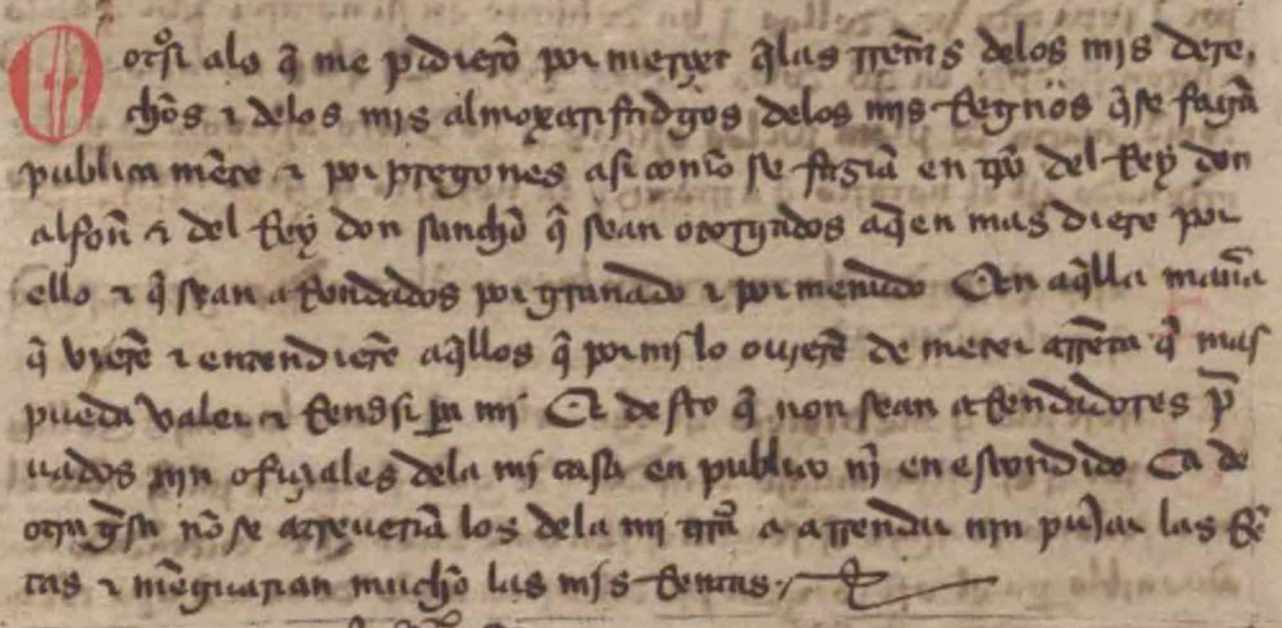 Otrosi alo q̃ me pidierõ por merçet q̃las rrẽtas delos mis dere
chos τ delos mis almoxarifadgos delos mis Regnos q̃se fagã
publica mẽte τ por pregones asi como se fazia en tp̃o del Rey don
alfoñ τ del Rey don sancho q̃ sean otorgados aq̃en mas diere por
ello τ q̃ sean a Rendados por granado τ por menudo Et en aq̃lla man̄a
q̃ vierẽ τ entendierẽ aq̃llos q̃ por mi lo ouierẽ de meter arrẽta q̃ mas
pueda valer τ Rendir pa mi Et desto q̃ non sean a Rendadores p̃
uados nin ofiçiales dela mi casa en publico nĩ en escondido Ca de
otra g̃sa nõ se atreueriã los dela mi trr̃a a arrendar nin pujar las Rẽ
tas τ mẽguarian mucho las mis Rentas